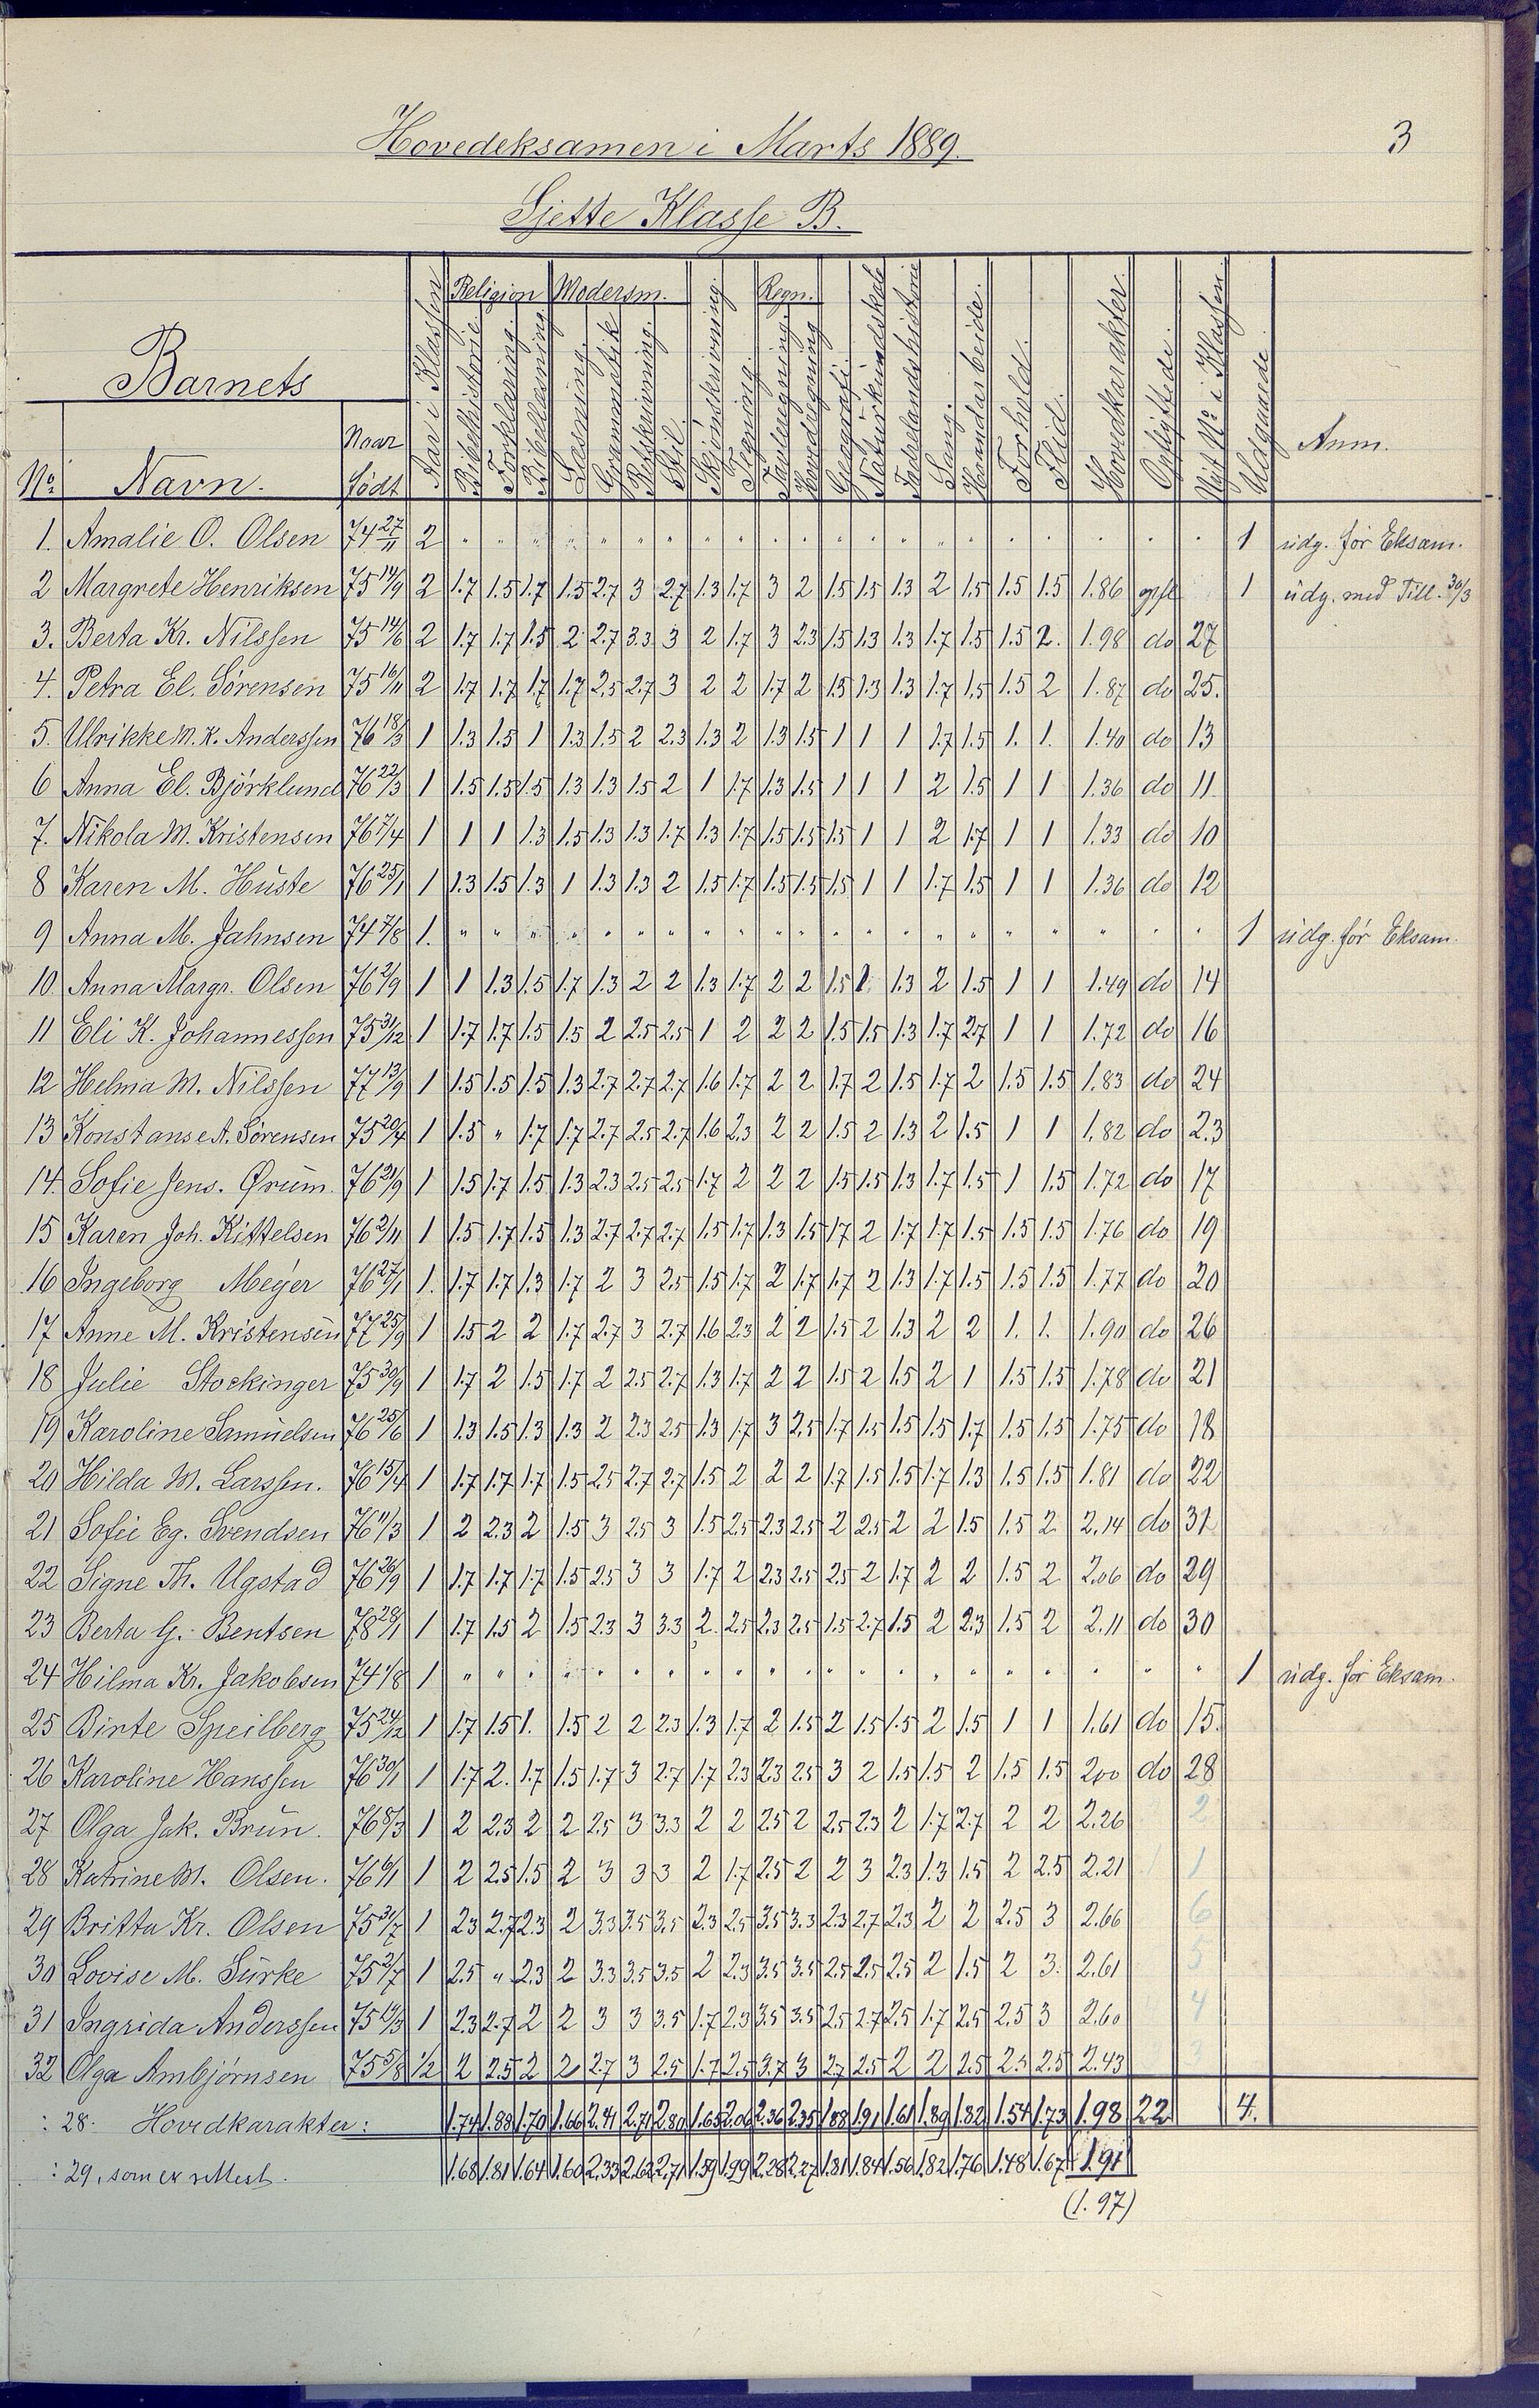 3
Hovedeksamen i Marts 1889.
Sjette Klasse B.
Barnets
No. Navn. Naar Født Aar i Klassen Religion Bibelhistorie Forklaring Bibellæsning Modersm. Læsning Grammatik Retskrivning Stil Skjønskrivning Tegning Regn. Tavleregning Hovedregning Geografi Naturkundskab Fædrelandshistorie Sang Haandarbeide Forhold Flid Hovedkarakter Opflyttede Nyt No. i Klassen Udgaaede Anm.
1. Amalie O. Olsen 74 27/11 2 " " " " " " " " " " " " " " " " " " " " " 1 udg. før Eksam.
2 Margrete Henriksen 75 14/9 2 1.7 1.5 1.7 1.5 2.7 3 2.7 1.3 1.7 3 2 1.5 1.5 1.3 2 1.5 1.5 1.5 1.86 opfl 1 udg. med Till. 30/3
3. Berta Kr. Nilssen 75 14/6 2 1.7 1.7 1.5 2 2.7 3.3 3 2 1.7 3 2.3 1.5 1.3 1.3 1.7 1.5 1.5 2. 1.98 do 27
4. Petra El. Sørensen 75 16/11 2 1.7 1.7 1.7 1.7 2.5 2.7 3 2 2 1.7 2 1.5 1.3 1.3 1.7 1.5 1.5 2 1.87 do 25.
5. Ulrikke M. K. Anderssen 76 18/3 1 1.3 1.5 1 1.3 1.5 2 2.3 1.3 2 1.3 1.5 1 1 1 1.7 1.5 1. 1. 1.40 do 13
6 Anna El. Bjørklund 76 22/3 1 1.5 1.5 1.5 1.3 1.3 1.5 2 1 1.7 1.3 1.5 1 1 1 2 1.5 1 1 1.36 do 11
7. Nikola M. Kristensen 76 7/4 1 1 1 1.3 1.5 1.3 1.3 1.7 1.3 1.7 1.5 1.5 1.5 1 1 2 1.7 1 1 1.33 do 10
8 Karen M. Huste 76 25/1 1 1.3 1.5 1.3 1 1.3 1.3 2 1.5 1.7 1.5 1.5 1.5 1 1 1.7 1.5 1 1 1.36 do 12
9 Anna M. Jahnsen 74 7/8 1. " " " " " " " " " " " " " " " " " " " " " 1 udg. før Eksam.
10. Anna Margr. Olsen 76 2/9 1 1 1.3 1.5 1.7 1.3 2 2 1.3 1.7 2 2 1.5 1. 1.3 2 1.5 1 1 1.49 do 14
11 Eli K. Johannessen 75 31/12 1 1.7 1.7 1.5 1.5 2 2.5 2.5 1 2 2 2 1.5 1.5 1.3 1.7 2.7 1 1 1.72 do 16
12 Helma M. Nilssen 77 13/9 1 1.5 1.5 1.5 1.3 2.7 2.7 2.7 1.6 1.7 2 2 1.7 2 1.5 1.7 2 1.5 1.5 1.83 do 24
13 Konstanse A. Sørensen 75 20/4 1 1.5 " 1.7 1.7 2.7 2.5 2.7 1.6 2.3 2 2 1.5 2 1.3 2 1.5 1 1 1.82 do 23
14. Sofie Jens. Ørum 76 21/9 1 1.5 1.7 1.5 1.3 2.3 2.5 2.5 1.7 2 2 2 1.5 1.5 1.3 1.7 1.5 1 1.5 1.72 do 17
15 Karen Joh. Kittelsen 76 2/11 1 1.5 1.7 1.5 1.3 2.7 2.7 2.7 1.5 1.7 1.3 1.5 1.7 2 1.7 1.7 1.5 1.5 1.5 1.76 do 19
16 Ingeborg Meyer 76 27/1 1. 1.7 1.7 1.3 1.7 2 3 2.5 1.5 1.7 2 1.7 1.7 2 1.3 1.7 1.5 1.5 1.5 1.77 do 20
17 Anne M. Kristensen 77 25/9 1 1.5 2 2 1.7 2.7 3 2.7 1.6 2.3 2 2 1.5 2 1.3 2 2 1. 1. 1.90 do 26
18 Julie Stockinger 75 30/9 1 1.7 2 1.5 1.7 2 2.5 2.7 1.3 1.7 2 2 1.5 2 1.5 2 1 1.5 1.5 1.78 do 21
19 Karoline Samuelsen 76 25/6 1 1.3 1.5 1.3 1.3 2 2.3 2.5 1.3 1.7 3 2.5 1.7 1.5 1.5 1.5 1.7 1.5 1.5 1.75 do 18
20 Hilda M. Larssen. 76 15/4 1 1.7 1.7 1.7 1.5 2.5 2.7 2.7 1.5 2 2 2 1.7 1.5 1.5 1.7 1.3 1.5 1.5 1.81 do 22
21 Sofie Eg. Svendsen 76 11/3 1 2 2.3 2 1.5 3 2.5 3 1.5 2.5 2.3 2.5 2 2.5 2 2 1.5 1.5 2 2.14 do 31
22 Signe Th. Ugstad 76 26/9 1 1.7 1.7 1.7 1.5 2.5 3 3 1.7 2 2.3 2.5 2.5 2 1.7 2 2 1.5 2 2.06 do 29
23 Berta G. Bentsen 78 28/1 1 1.7 1.5 2 1.5 2.3 3 3.3 2. 2.5 2.3 2.5 1.5 2.7 1.5 2 2.3 1.5 2 2.11 do 30
24 Hilma Kr. Jakobsen 74 1/8 1 " " " " " " " " " " " " " " " " " " " " " 1 udg. før Eksam.
25 Birte Speilberg 75 24/12 1 1.7 1.5 1. 1.5 2 2 2.3 1.3 1.7 2 1.5 2 1.5 1.5 2 1.5 1 1 1.61 do 15.
26 Karoline Hanssen 76 30/1 1 1.7 2. 1.7 1.5 1.7 3 2.7 1.7 2.3 2.3 2.5 3 2 1.5 1.5 2 1.5 1.5 2.00 do 28
27 Olga Jak. Brun. 76 8/3 1 2 2.3 2 2 2.5 3 3.3 2 2 2.5 2 2.5 2.3 2 1.7 2.7 2 2 2.26 2
28 Katrine M. Olsen. 76 6/1 1 2 2.5 1.5 2 3 3 3 2 1.7 2.5 2 2 3 2.3 1.3 1.5 2 2.5 2.21 1
29 Britta Kr. Olsen 75 31/7 1 2.3 2.7 2.3 2 3.3 3.5 3.5 2.3 2.5 3.5 3.3 2.3 2.7 2.3 2 2 2.5 3 2.66 6
30 Lovise M. Surke 75 2/7 1 2.5 " 2.3 2 3.3 3.5 3.5 2 2.3 3.5 3.5 2.5 2.5 2.5 2 1.5 2 3. 2.61 5
31 Ingrida Anderssen 75 1 2.3 2.7 2 2 3 3 3.5 1.7 2.3 3.5 3.5 2.5 2.7 2.5 1.7 2.5 2.5 3 2.60 4
32 Olga Ambjørnsen 75 5/8 1/2 2 2.5 2 2 2.7 3 2.5 1.7 2.5 3.7 3 2.7 2.5 2 2 2.5 2.3 2.5 2.43 3
: 28. Hovedkarakter: 1.74 1.88 1.70 1.66 2.41 2.71 2.80 1.65 2.06 2.36 2.35 1.88 1.91 1.61 1.89 1.82 1.54 1.73 1.98 22 4.
: 29, som er 1.68 1.81 1.64 1.60 2.33 2.62 2.71 1.59 1.99 2.28 2.27 1.81 1.84 1.56 1.82 1.76 1.48 1.67 1.91
(1.97)